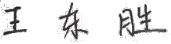 王东胜